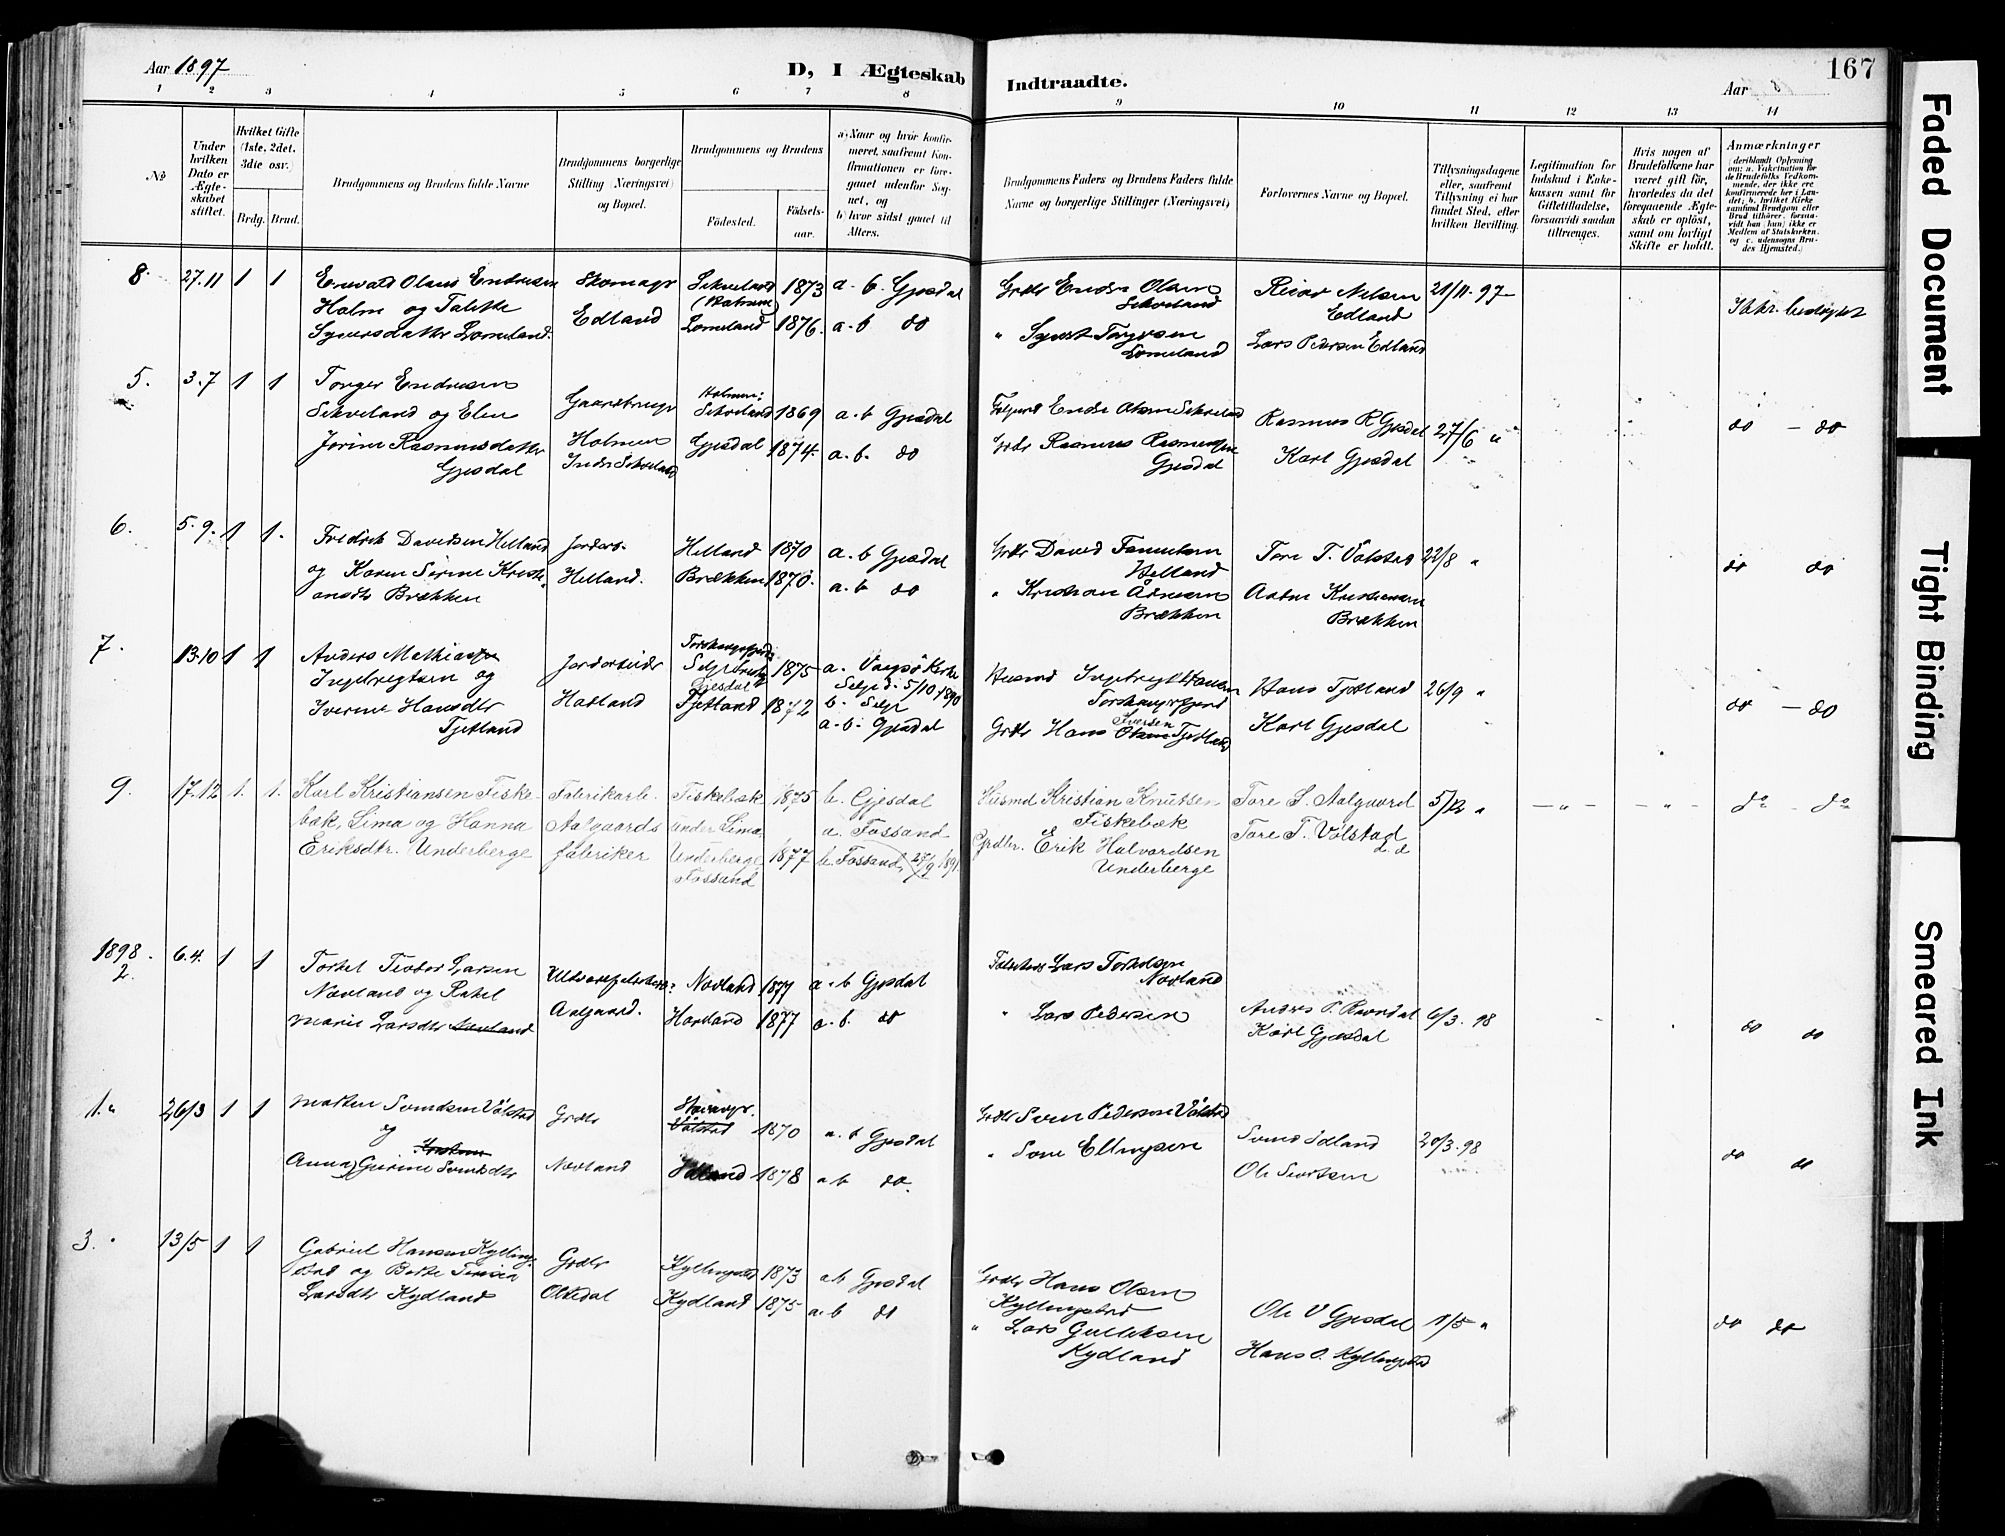 Aar 1897
D, I Ægteskab Indtraadte.
Aar 8
167
1 2 3 4 5 6 7 8 9 10 11 12 13 14
No
Under hvilken Dato er Ægteskabet stiftet.
Hvilket Gifte (1ste, 2det, 3die osv.)
Brdg. Brud.
Brudgommens og Brudens fulde Navne
Brudgommens borgerlige Stilling (Næringsvei) og Bopæl.
Brudgommens og Brudens
Fødested.
Fødselsaar.
a) Naar og hvor konfirmeret, saafremt Konfirmationen er foregaaet udenfor Sognet, og
b) hvor sidst gaaet til Alters.
Brudgommens Faders og Brudens Faders fulde Navne og borgerlige Stillinger (Næringsvei)
Forlovernes Navne og Bopæl.
Tillysningsdagene eller, saafremt Tillysning ei har fundet Sted, efter hvilken Bevilling.
Legitimation for Indskud i Enkekassen samt for Giftetilladelse, forsaavidt saadan tiltrænges.
Hvis nogen af Brudefolkene har været gift før, hvorledes da det foregaaende Ægteskab er opløst, samt om lovligt Skifte er holdt.
Anmærkninger
(deriblandt Oplysning om: a. Vakcination for de Brudefolks Vedkommende, der ikke ere konfirmerede her i Landet; b. hvilket Kirkesamfund Brudgom eller Brud tilhører, forsaavidt han (hun) ikke er Medlem af Statskirken, og c. udensogns Brudes Hjemsted.)
8. 27.11 1 1
Enevald Olaus Endresen
Holm og Talette
Syversdatter Lomeland.
Skomagr
Edland
Sikveland
(Holmen)
Lomeland
1873
1876.
a. b. Gjesdal
a. b do
Grdbr Endre Olsen
Sikveland
" Syvert Torgersen
Lomeland
Reiar Nilsen
Edland
Lars Pedersen Edland
21/11. 97
5. 3.7 1 1
Torger Endresen
Sikveland og Elen
Jorine Rasmusdatter
Gjesdal
Gaardbruger
Holmen
Indre Sikveland
Holmen:
Sikveland
Gjesdal
1869
1874.
a. b Gjesdal
a. b. do
Endre Olsen Sikveland
Grdbr Rasmus Rasmussen
Gjesdal
Rasmus R Gjesdal
Karl Gjesdal
27/6 "
do - do
6. 5.9. 1 1.
Fredrik Davidsen Helland
og Karen Serine Kristiansdtr Brækken
Jordbr.
Helland.
Helland
Brækken
1870
1870.
a. b Gjesdal
a. b do
Grdbr David
Helland
" Kristian
Brækken
Tore T. Vølstad
Kristiansen
Brækken
22/8 "
do do
7. 13.10 1 1
Anders Mathias
Ingebregtsen og
Iverine Hansdtr
Tjetland
Haaland
Gjesdal
Tjetland
1875
1872
a. Vaagsø Kirke
Selje d. 5/10 1890
b. Selje
a. b. Gjesdal
Husmd Ingebregt Hansen
Grdbr Hans Iversen Olsen Tjetland
Hans Tjetland
Karl Gjesdal
26/9 "
do - do
9. 17.12 1. 1.
Karl Kristiansen Fiskebæk, Lima og Hanna
Eriksdtr. Underberge
Fabrikarb.
Aalgaards
fabriker
Fiskebæk
under Lima,
Underberge,
Fossand
1875
1877
b. Gjesdal
a. Fossand
b. Fossand, 27/9 1891.
Husmd Kristian Knutsen
Fiskebæk
Grdbr. Erik Halvardsen
Underberge
Tore S. Aalgaard
Tore T. Vølstad
5/12 "
— " — — " — do - do
1898
2. 6.4. 1 1
Torkel Teodor Larsen
Novland og Rakel
Marie Larsdtr Novland
Aalgaard.
Novland
Haaland
1877
1877
a. b Gjesdal
a. b. do
Lars Torkelsen
Novland
" Lars Pedersen
Anders P. Ravndal
Karl Gjesdal
6/3. 98
do do
1. 26/3 1 1
Morten Svendsen Vølstad
og
Anna Gurine Svendsdtr
Grdbr
Novland
Stavanger.
Vølstad
Idland
1870
1878
a. b Gjesdal
a b do.
Grdbr Sven Pedersen Vølstad
" Sven Ellingsen
Svend Idland
Ole Sivertsen
20/3. 98
do do
3. 13/5 1 1
Gabriel Hansen Kyllingstad og Berte Terisia
Larsdtr Kydland
Grdbr
Oltedal
Kyllingstad
Kydland
1873
1875
a b Gjesdal
a. b do
Grdbr Hans Olsen
Kyllingstad
" Lars Gulleksen
Kydland
Ole V Gjesdal
Hans O. Kyllingstad
1/5 "
do do
Faded Document
Tight Binding
Smeared Ink